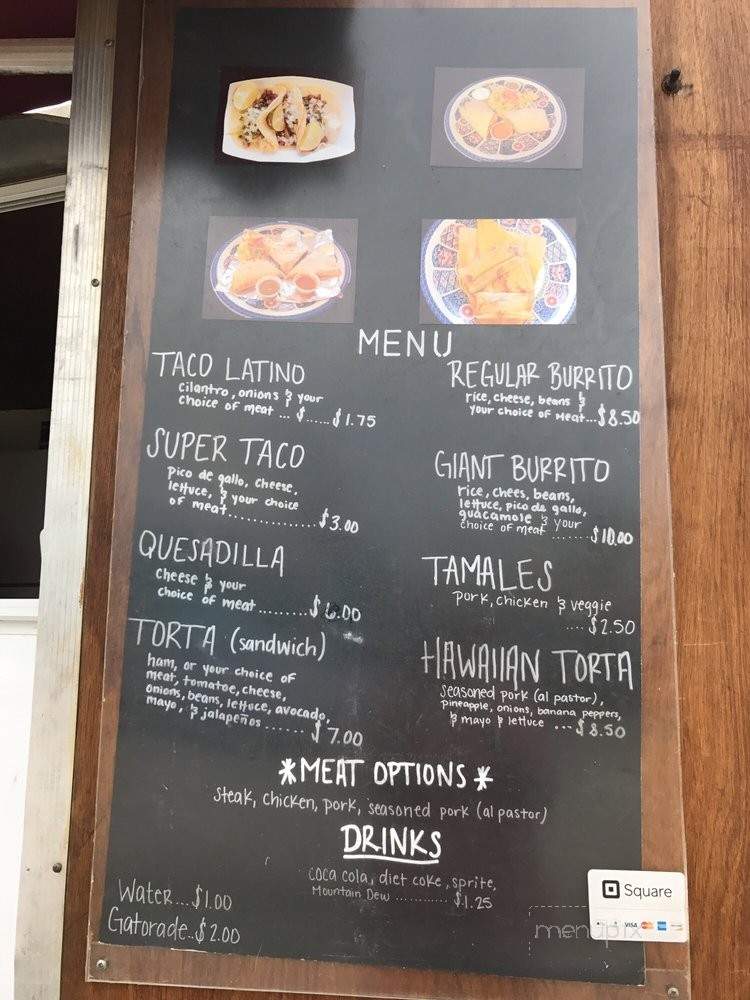 MENU
TACO LATINO
cilantro, onions & your
choice of meat ... $ ...... $1.75
SUPER TACO
pico de gallo, cheese,
lettuce, & your choice
of meat.............. $3.00
QUESADILLA
cheese & your
choice of meat ........ $6.00
TORTA (sandwich)
ham, or your choice of
meat, tomatoe, cheese,
onions, beans, lettuce, avocado,
mayo, & jalapeños ....... $7.00
REGULAR BURRITO
rice, cheese, beans &
your choice of meat...$8.50
GIANT BURRITO
rice, chees, beans,
lettuce, pico de gallo,
guacamole & your
choice of meat ...... $10.00
TAMALES
pork, chicken & veggie
.... $2.50
HAWAIIAN TORTA
seasoned pork (al pastor),
pineapple, onions, banana peppers,
& mayo & lettuce ... $8.50
*MEAT OPTIONS*
steak, chicken, pork, seasoned pork (al pastor)
DRINKS
coca cola, diet coke, sprite,
Mountain Dew ............ $1.25
Water...$1.00
Gatorade..$2.00
Square
VISA
menupix